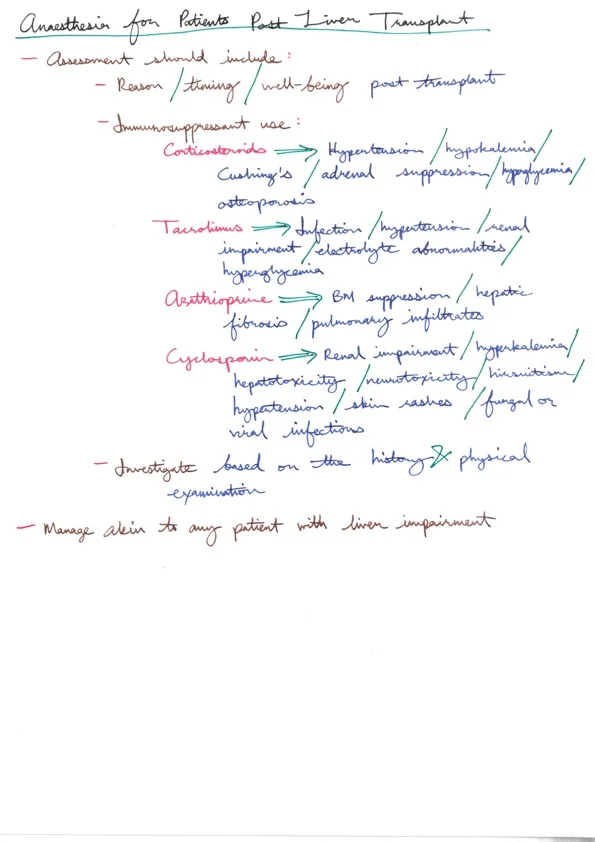 Anaesthesia for Patients Post Liver Transplant
- Assessment should include:
- Reason / timing / well-being post transplant
- Immunosuppressant use:
Corticosteroids ⇒ Hypertension / hypokalemia /
Cushing's / adrenal suppression / hyperglycemia /
osteoporosis
Tacrolimus ⇒ Infection / hypertension / renal
impairment / electrolyte abnormalities /
hyperglycemia
Azathioprine ⇒ BM suppression / hepatic
fibrosis / pulmonary infiltrates
Cyclosporin ⇒ Renal impairment / hyperkalemia /
hepatotoxicity / neurotoxicity / hirsuitism /
hypertension / skin rashes / fungal or
viral infections
- Investigate based on the history & physical
examination
- Manage akin to any patient with liver impairment